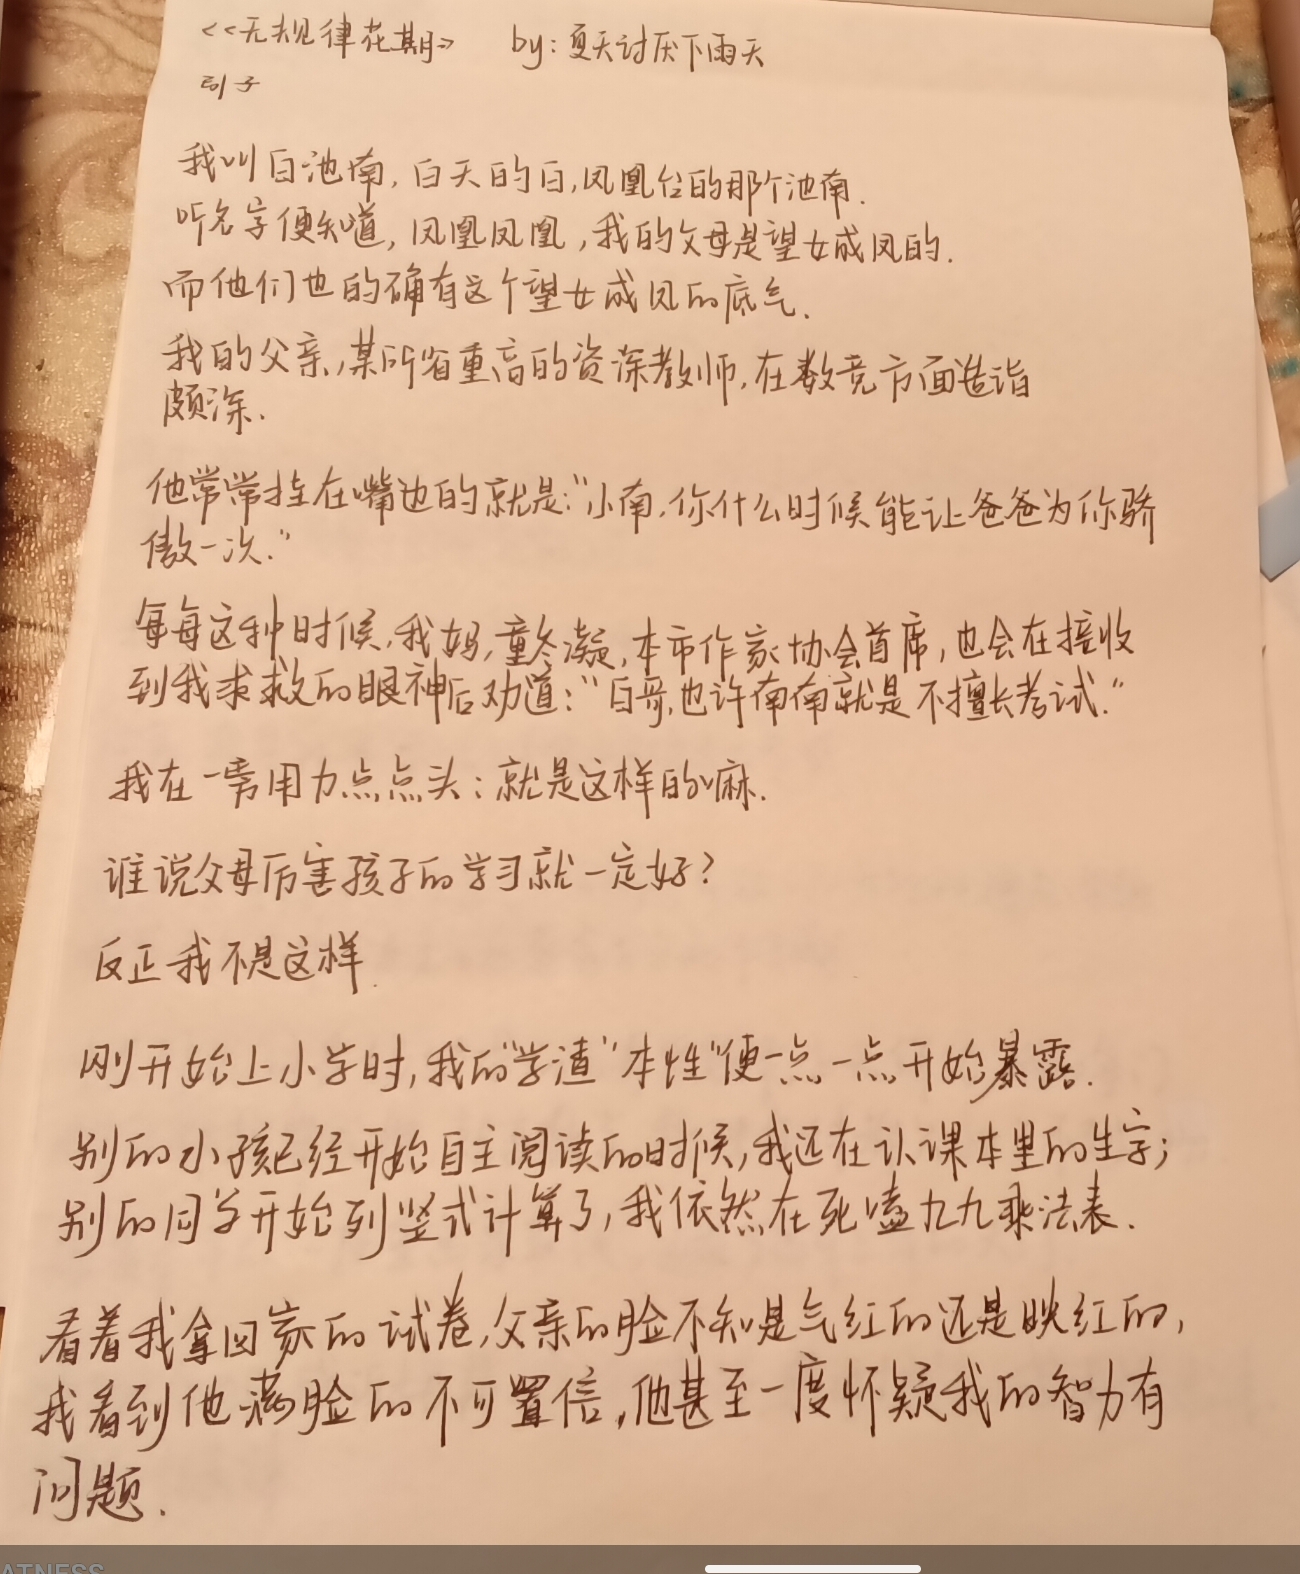 <<无规律花期>> by:夏天讨厌下雨天
引子
我叫白池南,白天的白,凤凰台的那个池南.
听名字便知道,凤凰凤凰,我的父母是望女成凤的.
而他们也的确有这个望女成凤的底气.
我的父亲,某所省重高的资深教师,在数竞方面造诣
颇深.
他常常挂在嘴边的就是:"小南,你什么时候能让爸爸为你骄
傲一次."
每每这种时候,我妈,童冬凝,本市作家协会首席,也会在接收
到我求救的眼神后劝道:"白哥,也许南南就是不擅长考试."
我在一旁用力点点头:就是这样的嘛.
谁说父母厉害孩子的学习就一定好?
反正我不是这样.
刚开始上小学时,我的"学渣"本性"便一点一点开始暴露.
别的小孩已经开始自主阅读的时候,我还在认课本里的生字;
别的同学开始列竖式计算了,我依然在死嗑九九乘法表.
看着我拿回家的试卷,父亲的脸不知是气红的还是映红的,
我看到他满脸的不可置信,他甚至一度怀疑我的智力有
问题.
ATNESS